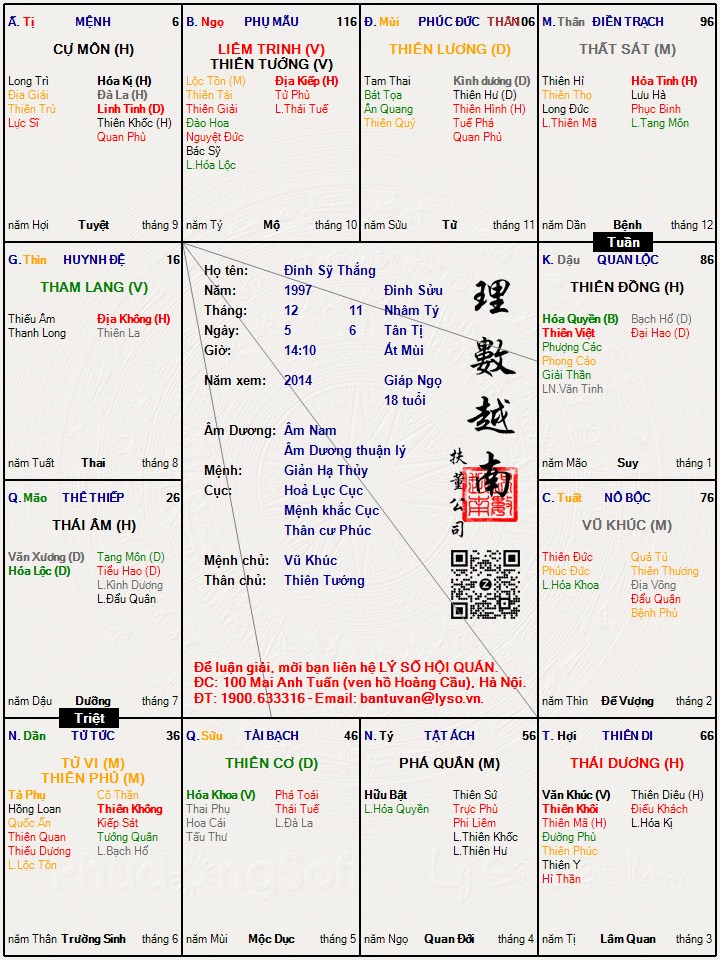 Ấ. Tị MỆNH 6
CỰ MÔN (H)
Long Trì Hóa Kị (H)
Địa Giải Đà La (H)
Thiên Trù Linh Tinh (D)
Lực Sĩ Thiên Khốc (H)
Quan Phủ
năm Hợi Tuyệt tháng 9
B. Ngọ PHỤ MẪU 116
LIÊM TRINH (V)
THIÊN TƯỚNG (V)
Lộc Tồn (M) Địa Kiếp (H)
Thiên Tài Tử Phù
Thiên Giải L.Thái Tuế
Đào Hoa
Nguyệt Đức
Bác Sỹ
L.Hóa Lộc
năm Tý Mộ tháng 10
Đ. Mùi PHÚC ĐỨC THÂN 106
THIÊN LƯƠNG (D)
Tam Thai Kình dương (D)
Bát Tọa Thiên Hư (D)
Ân Quang Thiên Hình (H)
Thiên Quý Tuế Phá
Quan Phù
năm Sửu Tử tháng 11
M. Thân ĐIỀN TRẠCH 96
THẤT SÁT (M)
Thiên Hỉ Hỏa Tinh (H)
Thiên Thọ Lưu Hà
Long Đức Phục Binh
L.Thiên Mã L.Tang Môn
năm Dần Bệnh tháng 12
Tuần
G. Thìn HUYNH ĐỆ 16
THAM LANG (V)
Thiếu Âm Địa Không (H)
Thanh Long Thiên La
năm Tuất Thai tháng 8
Họ tên: Đinh Sỹ Thắng
Năm: 1997 Đinh Sửu
Tháng: 12 11 Nhâm Tý
Ngày: 5 6 Tân Tị
Giờ: 14:10 Ất Mùi
Năm xem: 2014 Giáp Ngọ
18 tuổi
Âm Dương: Âm Nam
Âm Dương thuận lý
Mệnh: Giản Hạ Thủy
Cục: Hoả Lục Cục
Mệnh khắc Cục
Thân cư Phúc
Mệnh chủ: Vũ Khúc
Thân chủ: Thiên Tướng
理數越南
扶董公司
Để luận giải, mời bạn liên hệ LÝ SỐ HỘI QUÁN.
ĐC: 100 Mai Anh Tuấn (ven hồ Hoàng Cầu), Hà Nội.
ĐT: 1900.633316 - Email: bantuvan@lyso.vn.
K. Dậu QUAN LỘC 86
THIÊN ĐỒNG (H)
Hóa Quyền (B) Bạch Hổ (D)
Thiên Việt Đại Hao (D)
Phượng Các
Phong Cáo
Giải Thần
LN.Văn Tinh
năm Mão Suy tháng 1
Q. Mão THÊ THIẾP 26
THÁI ÂM (H)
Văn Xương (D) Tang Môn (D)
Hóa Lộc (D) Tiểu Hao (D)
L.Kình Dương
L.Đẩu Quân
năm Dậu Dưỡng tháng 7
Triệt
C. Tuất NÔ BỘC 76
VŨ KHÚC (M)
Thiên Đức Quả Tú
Phúc Đức Thiên Thương
L.Hóa Khoa Địa Võng
Đẩu Quân
Bệnh Phù
năm Thìn Đế Vượng tháng 2
N. Dần TỬ TỨC 36
TỬ VI (M)
THIÊN PHỦ (M)
Tả Phụ Cô Thần
Hồng Loan Thiên Không
Quốc Ấn Kiếp Sát
Thiên Quan Tướng Quân
Thiếu Dương L.Bạch Hổ
L.Lộc Tồn
năm Thân Trường Sinh tháng 6
Q. Sửu TÀI BẠCH 46
THIÊN CƠ (D)
Hóa Khoa (V) Phá Toái
Thai Phụ Thái Tuế
Hoa Cái L.Đà La
Tấu Thư
năm Mùi Mộc Dục tháng 5
N. Tý TẬT ÁCH 56
PHÁ QUÂN (M)
Hữu Bật Thiên Sứ
L.Hóa Quyền Trực Phù
Phi Liêm
L.Thiên Khốc
L.Thiên Hư
năm Ngọ Quan Đới tháng 4
T. Hợi THIÊN DI 66
THÁI DƯƠNG (H)
Văn Khúc (V) Thiên Diêu (H)
Thiên Khôi Điếu Khách
Thiên Mã (H) L.Hóa Kị
Đường Phù
Thiên Phúc
Thiên Y
Hỉ Thần
năm Tị Lâm Quan tháng 3